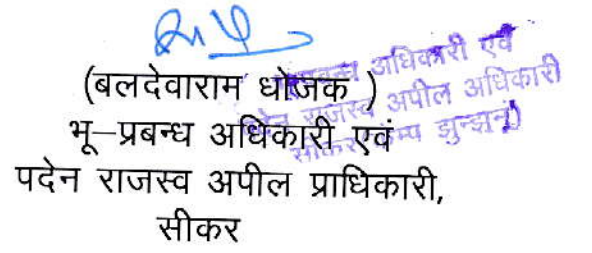 (बलदेवाराम धोजक )
भू–प्रबन्ध अधिकारी एवं
पदेन राजस्व अपील प्राधिकारी,
सीकर
अधिकारी एवं
राजस्व अपील अधिकारी
झुन्झुनू)